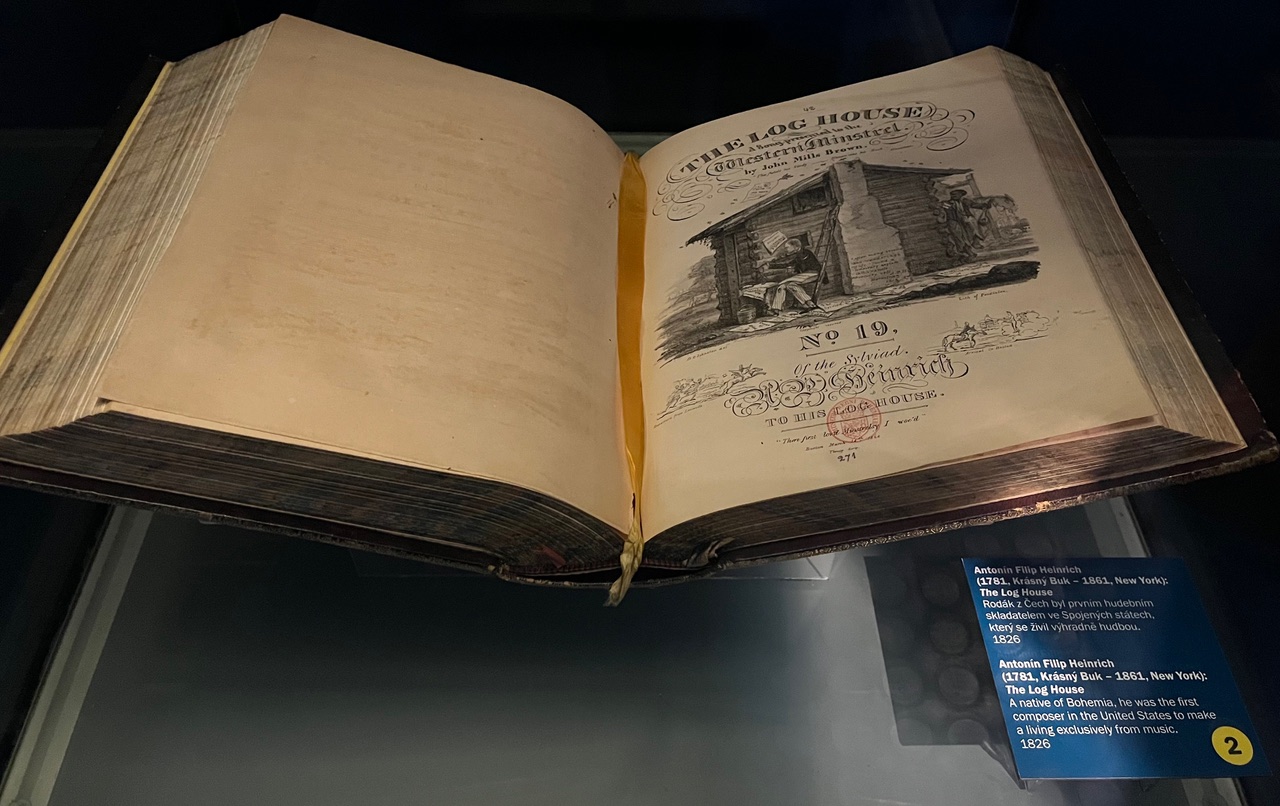 THE LOG HOUSE
A Song presented to the
Western Minstrel.
by John Mills Brown.
No 19,
Of the Sylviad.
A. P. Heinrich
TO HIS LOG HOUSE.
"There first
I woo'd
271
Antonín Filip Heinrich
(1781, Krásný Buk – 1861, New York):
The Log House
Rodák z Čech byl prvním hudebním
skladatelem ve Spojených státech,
který se živil výhradně hudbou.
1826
Antonín Filip Heinrich
(1781, Krásný Buk – 1861, New York):
The Log House
A native of Bohemia, he was the first
composer in the United States to make
a living exclusively from music.
1826
2